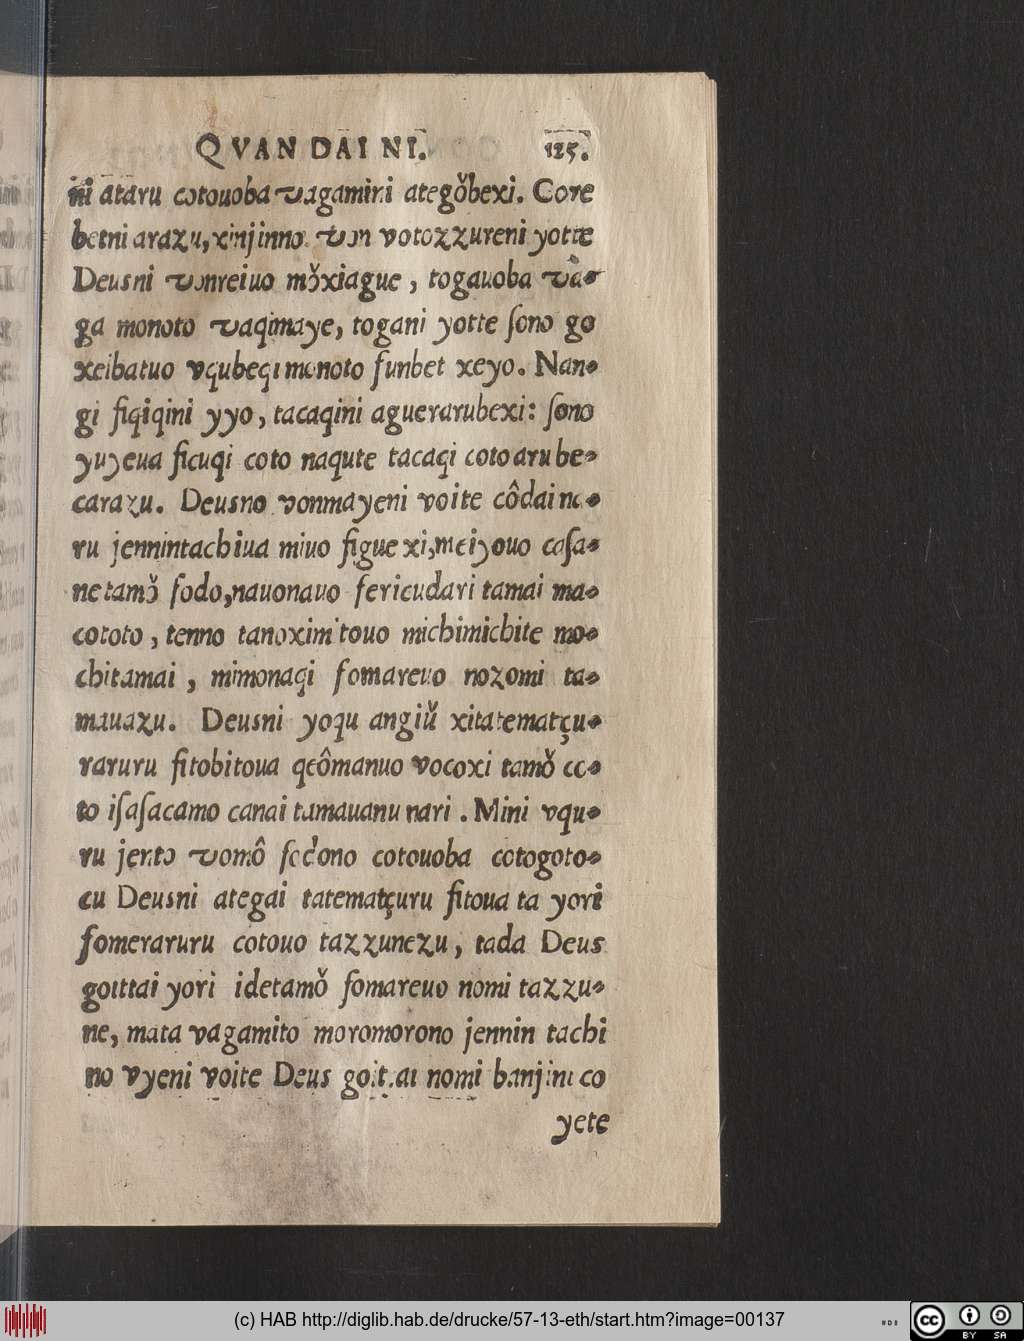 QVAN DAI NI. 125.
ni ataru cotouoba vagamini ategǒbexi. Core
betni arazu, xinjinno von votozzureni yotte
Deusni vonreiuo mǒxiague, togauoba va-
ga monoto vaqimaye, togani yotte ſono go
xeibatuo vqubeqi monoto funbet xeyo. Nan-
gi fiqiqini yyo, tacaqini aguerarubexi: ſono
yuyeua ficuqi coto naqute tacaqi coto aru be-
carazu. Deusno vonmayeni voite côdai na-
ru jennintachiua miuo figue xi, meiyouo caſa-
netamǒ fodo, nauonauo fericudari tamai ma-
cototo, tenno tanoximitouo michimichite mo-
chitamai, mimonaqi fomareuo nozomi ta-
mauazu. Deusni yoqu angiǔ xitatematçu-
raruru fitobitoua qeômanuo vocoxi tamǒ co-
to iſaſacamo canai tamauanu nari. Mini vqu-
ru jento vomô fodono cotouoba cotogoto-
cu Deusni ategai tatematçuru fitoua ta yori
fomeraruru cotouo tazzunezu, tada Deus
goittai yori idetamǒ fomareuo nomi tazzu-
ne, mata vagamito moromorono jennin tachi
no vyeni voite Deus goittai nomi banjini co
yete
(c) HAB http://diglib.hab.de/drucke/57-13-eth/start.htm?image=00137
HAB
cc
BY SA